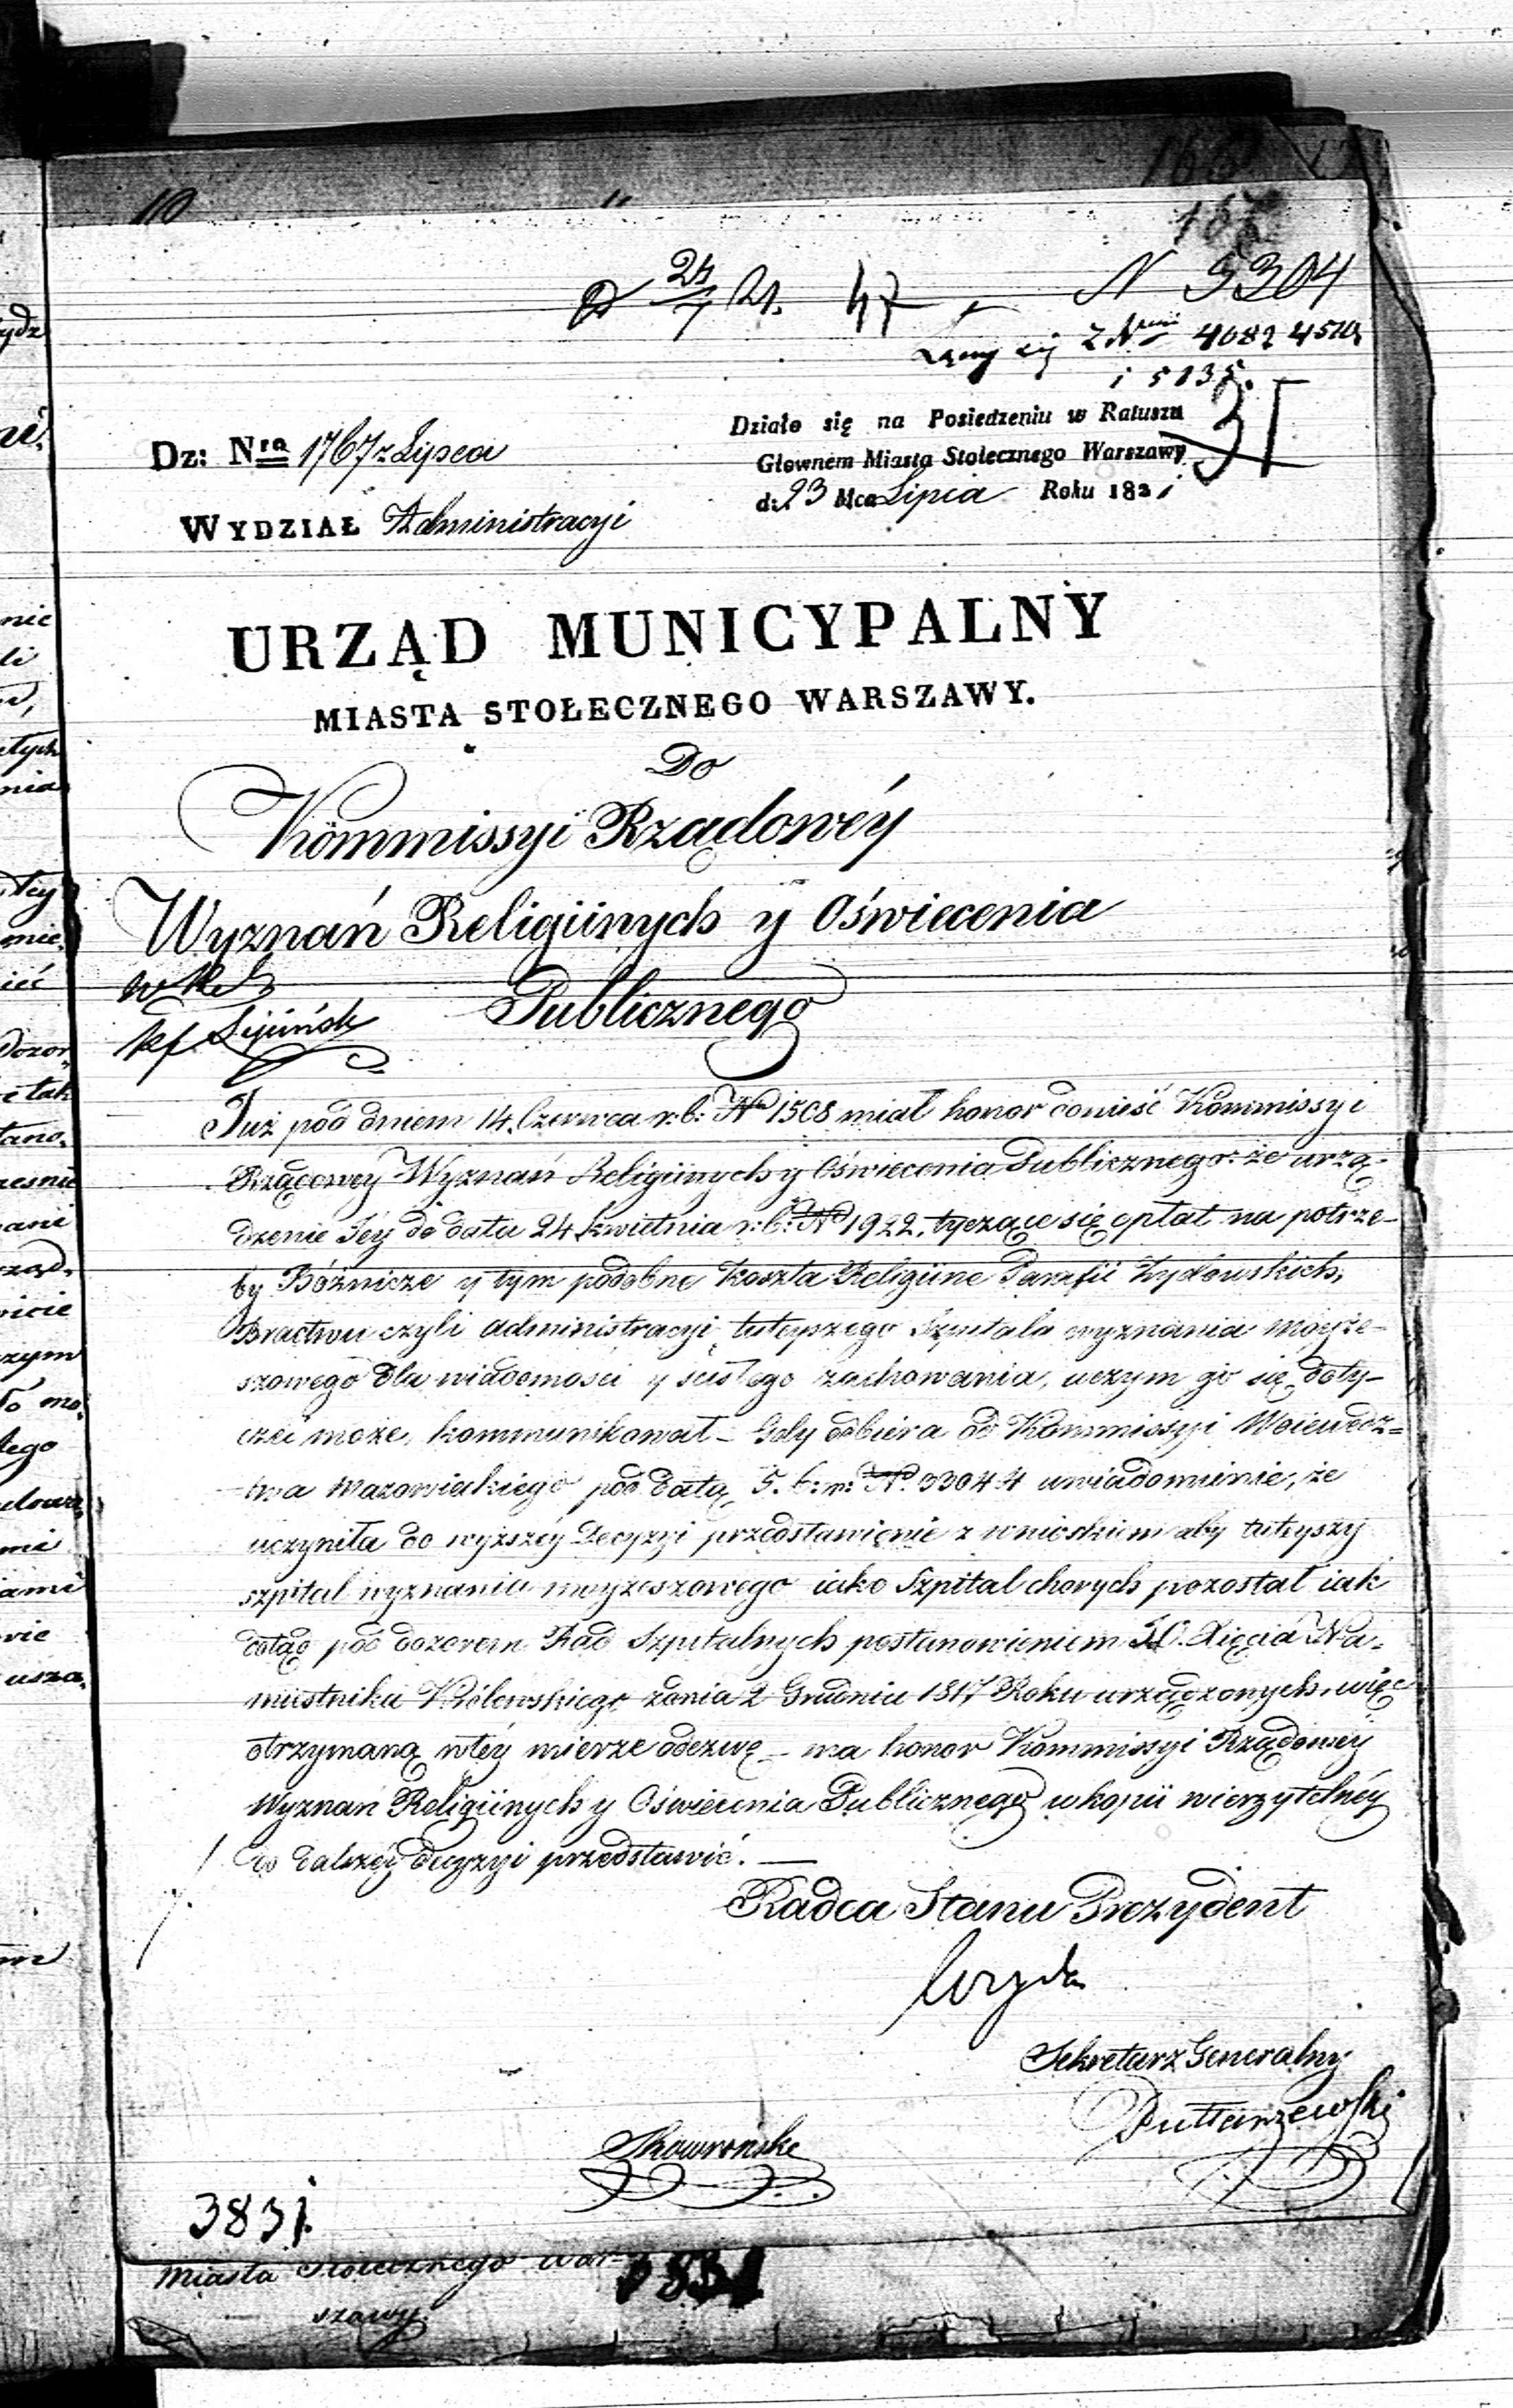 10
187
24/7 21. 47
N 5304
Łączy się z Nrami 4082 4519
i 5135.
31
Dz: Nro 1767 z Lipca
Działo się na Posiedzeniu w Ratuszu
Głownem Miasta Stołecznego Warszawy
d: 23 Mca Lipca Roku 1821
WYDZIAŁ Administracyi
URZĄD MUNICYPALNY
MIASTA STOŁECZNEGO WARSZAWY.
Do
Kommissyi Rządowéy
Wyznań Religiinych y Oświecenia
Publicznego
Lipiński
Już pod dniem 14. Czerwca r: b: No 1508 miał honor donieść Kommissyi
Rządowéy Wyznań Religiinych y Oświecenia Publicznego: że urzą-
dzenie Jéy de data 24 kwietnia r: b: No 1922. tyczące się opłat na potrze-
by Bóżnicze y tym podobne koszta Religiine Parafii Żydowskich,
Bractwu czyli administracyi tuteyszego Szpitala wyznania moyże-
szowego dla wiadomości y ścisłego zachowania, w czym go się doty-
czeć może, kommunikował – Gdy odbiera od Kommissyi Woiewódz=
twa Mazowieckiego pod datą 5. b: m: No. 33044 uwiadomienie, że
uczyniła do wyższéy Decyzyi przedstawienie z wnioskiem aby tuteyszy
szpital wyznania moyżeszowego iako Szpital chorych pozostał iak
dotąd pod dozorem Rad Szpitalnych postanowieniem JO. Xięcia Na-
miestnika Królewskiego z dnia 2 Grudnia 1817 Roku urządzonych, więc
otrzymaną w téy mierze odezwę – ma honor Kommissyi Rządowéy
Wyznań Religiinych y Oświecenia Publicznego w kopii wierzytelnéy
do dalszéy decyzyi przedstawić. —
Radca Stanu Prezydent
Woyda
Sekretarz Generalny
Puttarzewski
Skowroński
3831.
Miasta Stołecznego War-
szawy.
3831